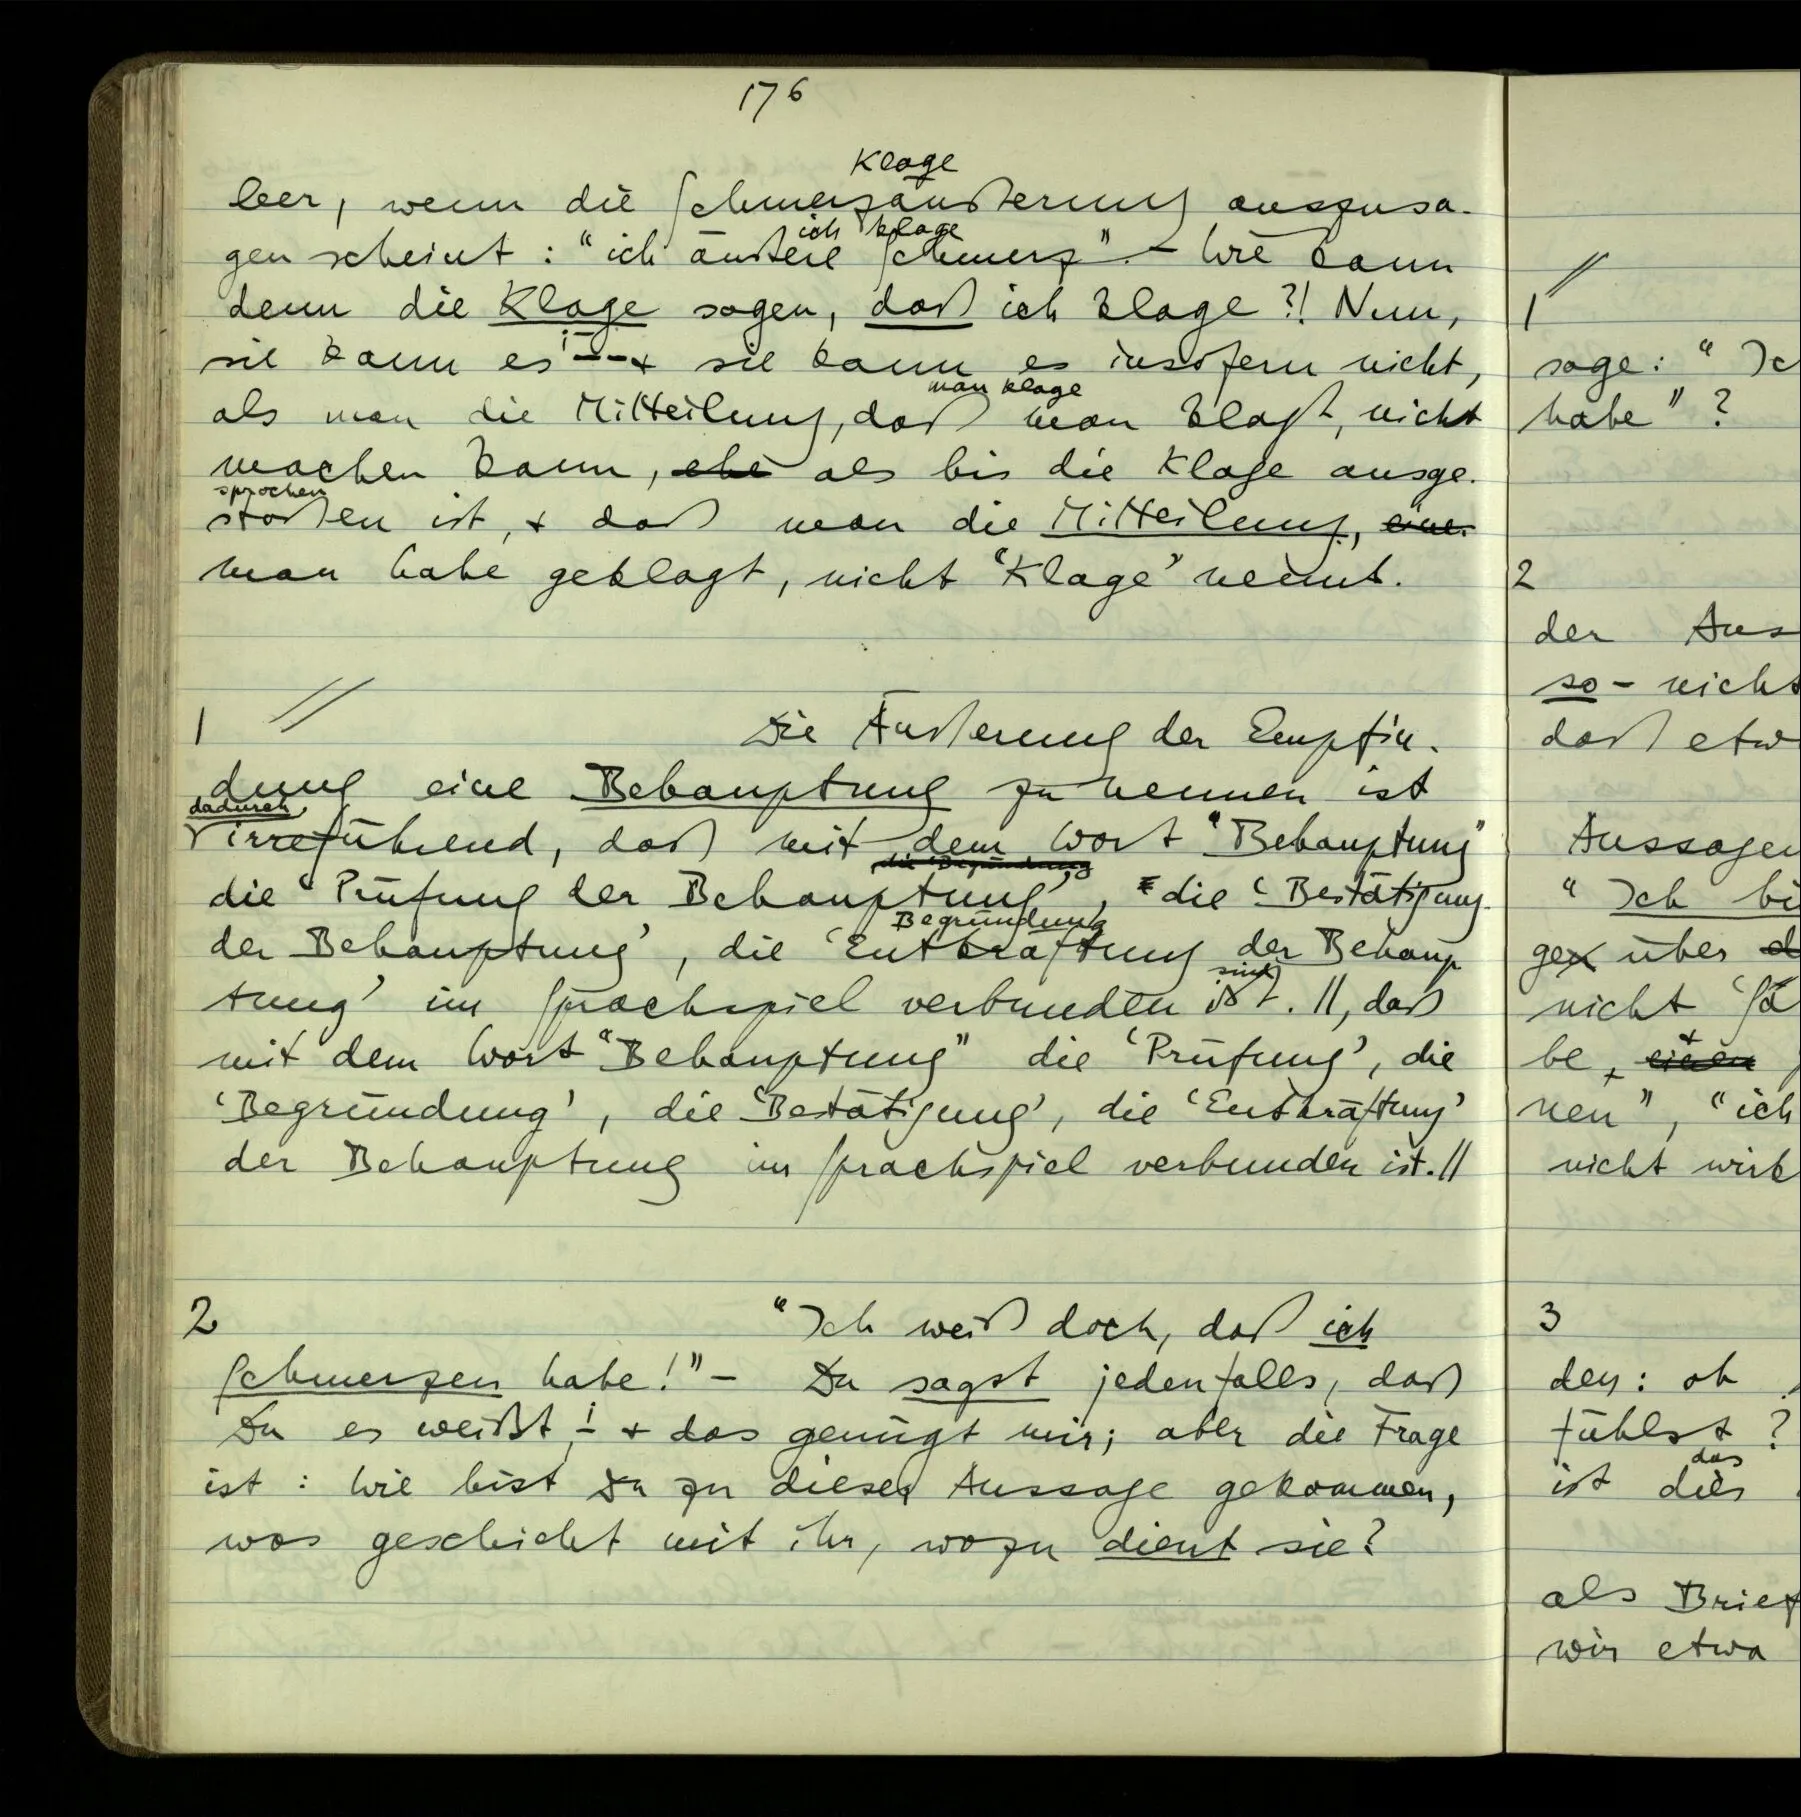 176
Klage
leer, wenn die Schmerzäußerung auszusa-
ich klage
gen scheint: “ich äußere Schmerz”. – Wie kann
denn die Klage sagen, daß ich klage?! Nun,
sie kann es – – + sie kann es insofern nicht,
man klage
als man die Mitteilung, daß man klagt, nicht
machen kann, ehe als bis die Klage ausge-
sprochen
stoßen ist, + daß man die Mitteilung, eine
man habe geklagt, nicht ‘Klage’ nennt.
1 //
Die Äußerung der Empfin-
dung eine Behauptung zu nennen ist
dadurch
irreführend, daß mit dem Wort “Behauptung”
die ‘Begründung
die ‘Prüfung der Behauptung’, die ‘Bestätigung
Begründung
der Behauptung’, die ‘Entkräftung der Behaup
sind
tung’ im Sprachspiel verbunden ist. //, daß
mit dem Wort “Behauptung” die ‘Prüfung’, die
‘Begründung’, die ‘Bestätigung’, die ‘Entkräftung’
der Behauptung im Sprachspiel verbunden ist. //
2
“Ich weiß doch, daß ich
Schmerzen habe!” – Du sagst jedenfalls, daß
Du es weißt; – + das genügt mir; aber die Frage
ist: Wie bist Du zu dieser Aussage gekommen,
was geschieht mit ihr, wozu dient sie?
//
1
sage: “Ic
habe”?
2
der Aus
so – nicht
daß etw
Aussagen
“Ich bi
gex über d
nicht ‘Sä
be, + einen
nen”, “ich
nicht wirk
3
den: ob
fühlst?
das
ist dies
als Brief
wir etwa